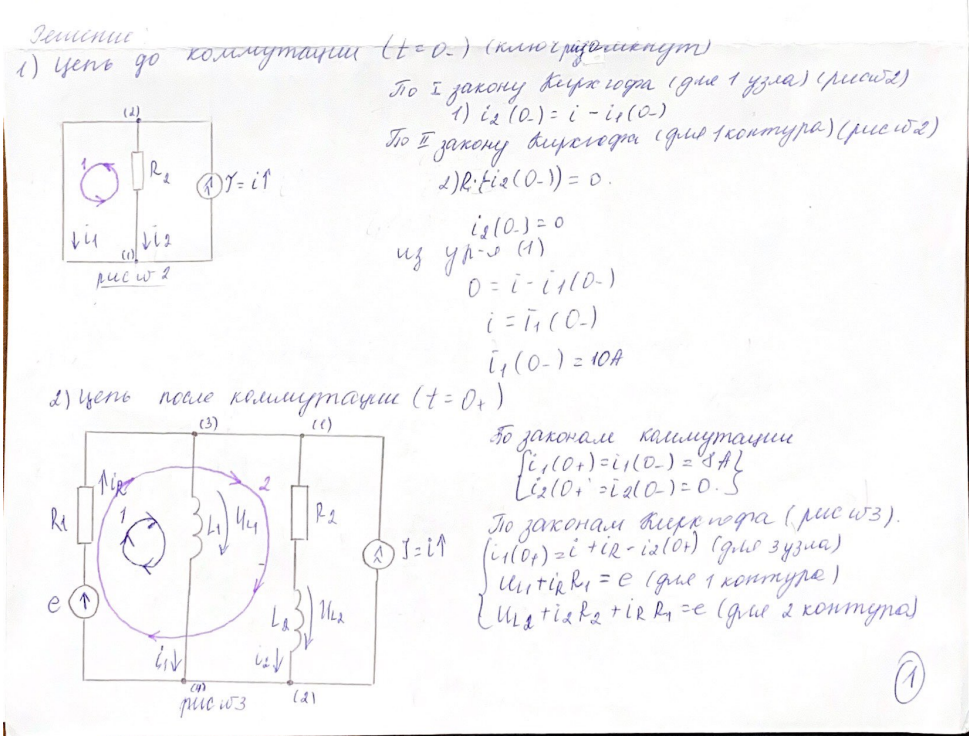 Решение:
1) Цепь до коммутации (t=0₋) (ключ разомкнут)
По I закону Кирхгофа (для 1 узла) (рис №2)
1) i₂(0₋) = i - i₁(0₋)
По II закону Кирхгофа (для 1 контура) (рис №2)
(2)
1
R₂
J=i↑
↓i₁
(1)
↓i₂
рис №2
i₂(0₋)=0
из ур-я (1)
0 = i - i₁(0₋)
i = i₁(0₋)
i₁(0₋) = 10А
2) Цепь после коммутации (t=0₊)
(3)
(1)
↑iR
2
R₁
1
L₁
UL1
R₂
J=i↑
e
L₂
UL2
i₁↓
i₂↓
(4)
(2)
рис №3
По законам коммутации
i₂(0₊ =i₂(0₋)=0.
По законам Кирхгофа (рис №3).
i₁(0₊)=i+iR-i₂(0₊) (для 3 узла)
uL1+iRR₁=e (для 1 контура)
uL2+i₂R₂+iRR₁=e (для 2 контура)
1